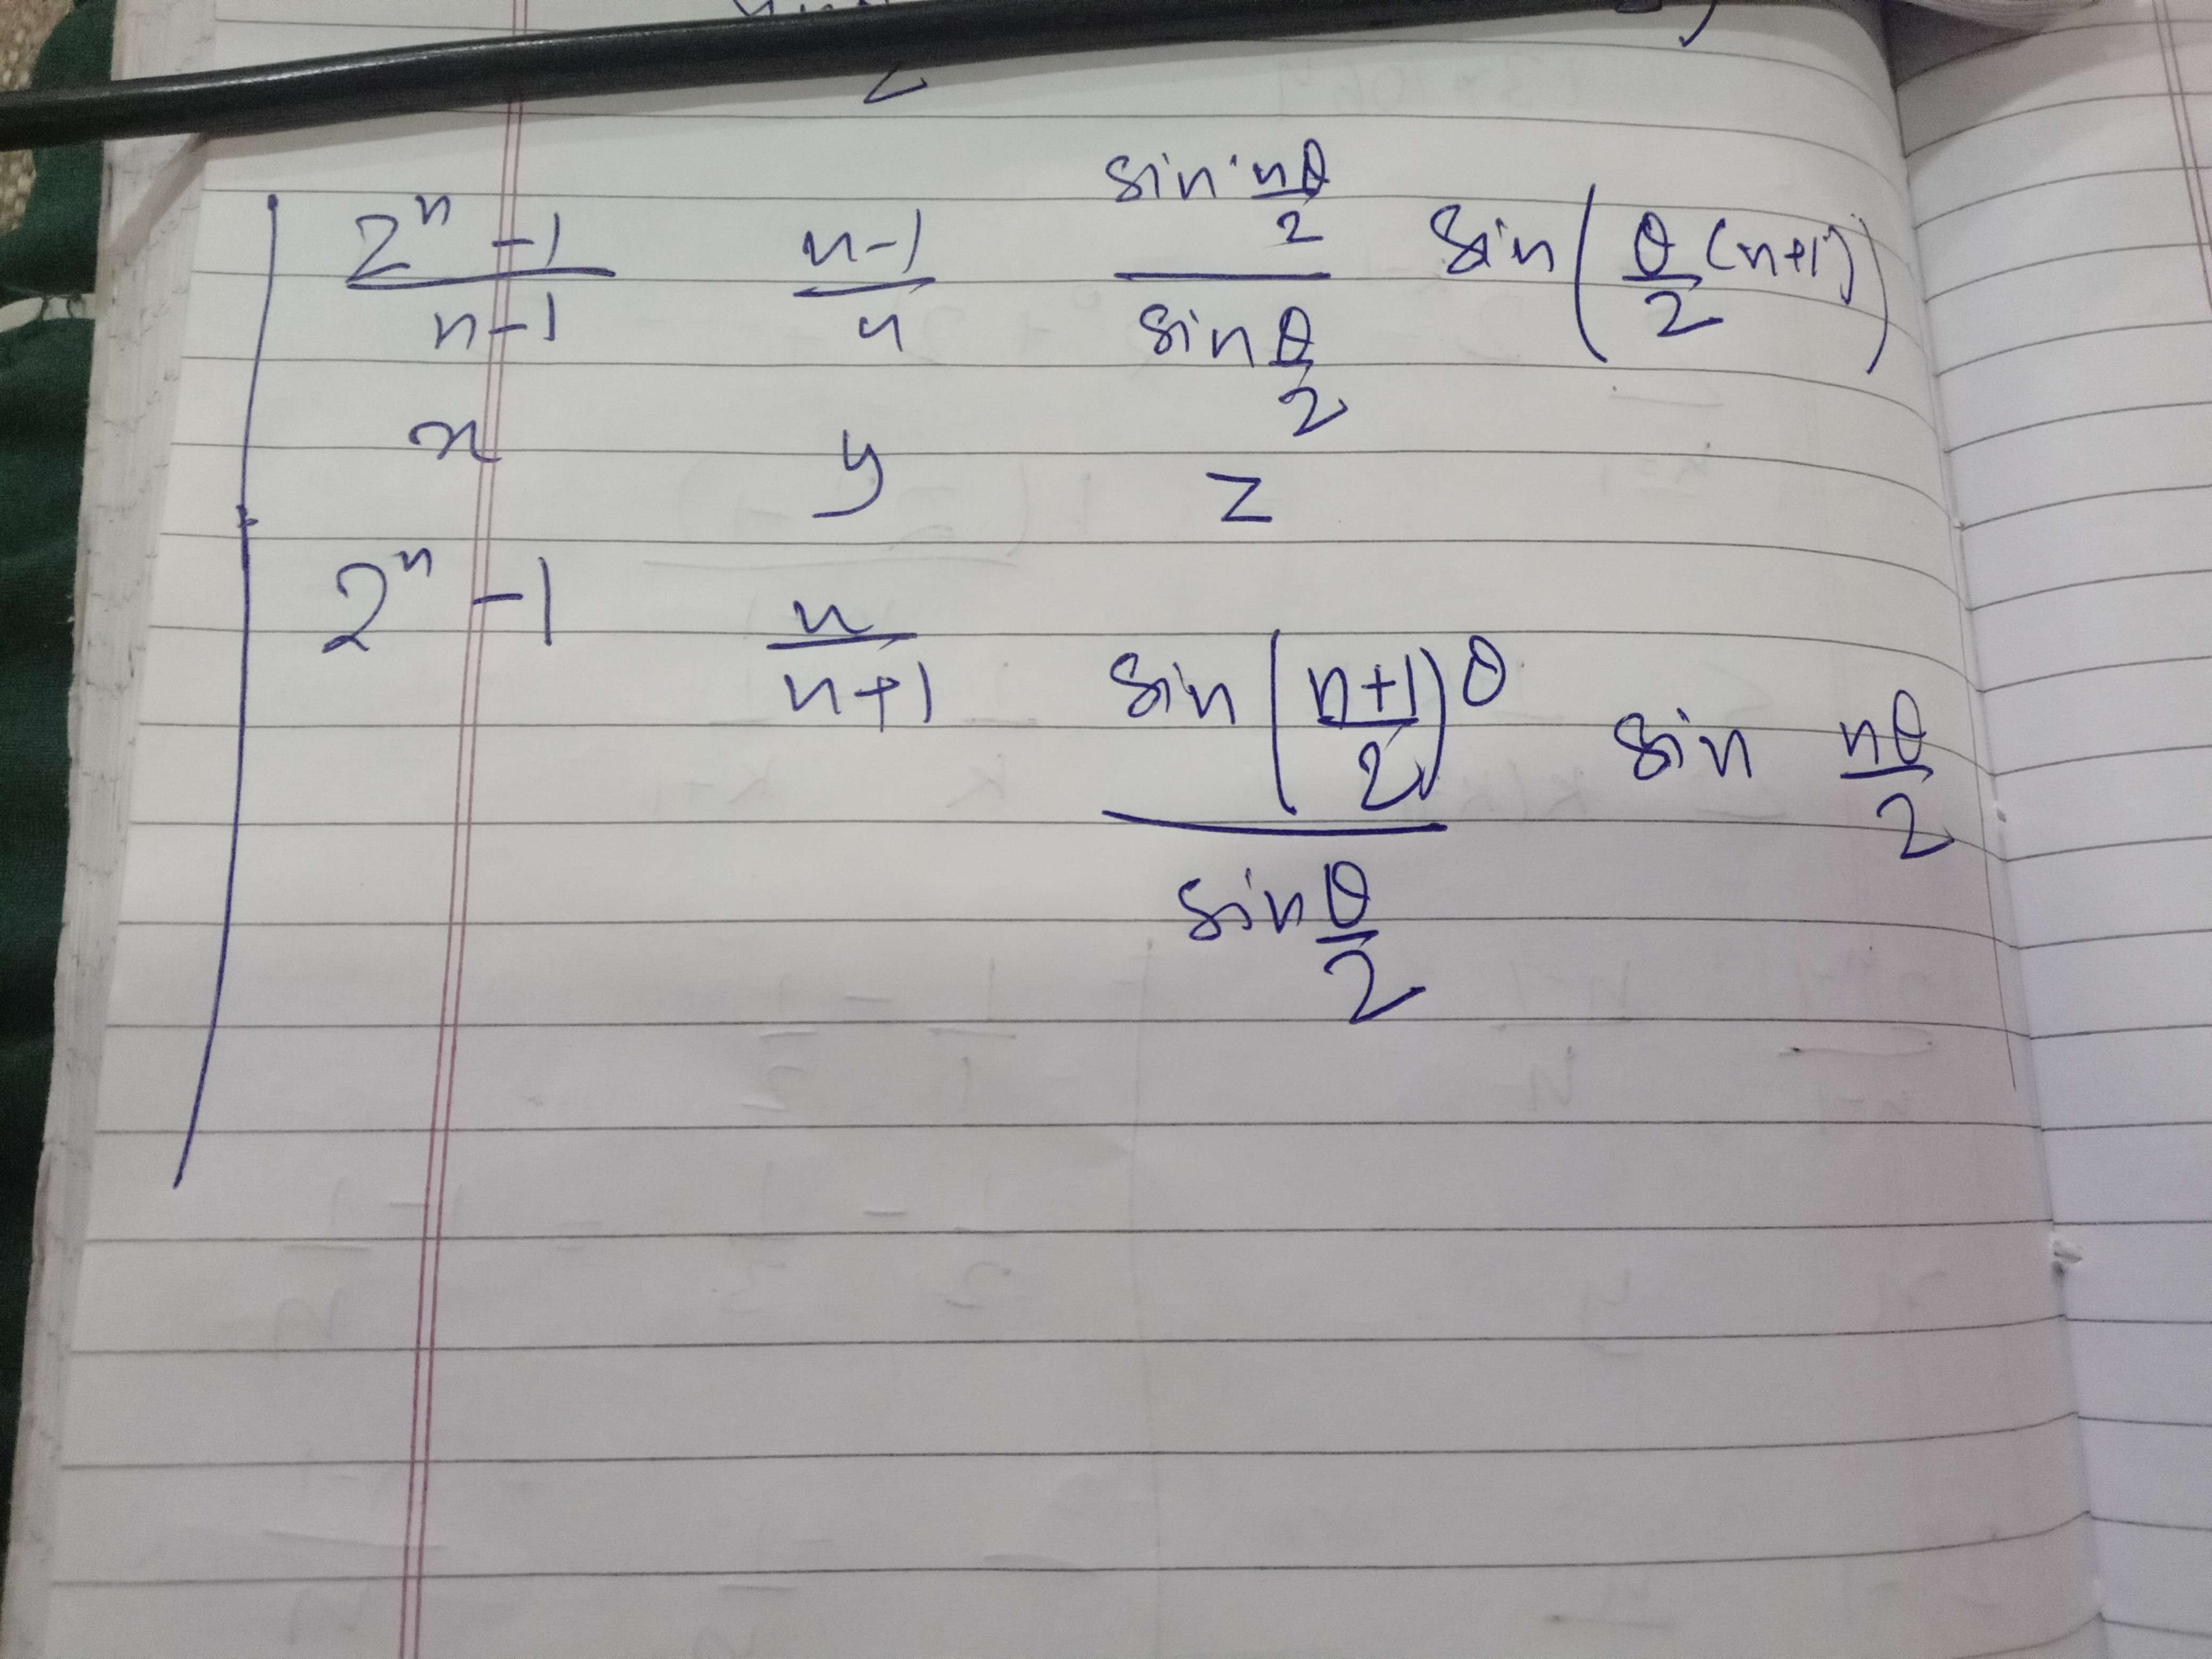 | (2^n - 1)/(n-1)   (n-1)/n   (sin nθ/2)/(sin θ/2) sin(θ/2 (n+1))
x   y   z
2^n - 1   n/(n+1)   (sin((n+1)/2)θ)/(sin θ/2) sin nθ/2